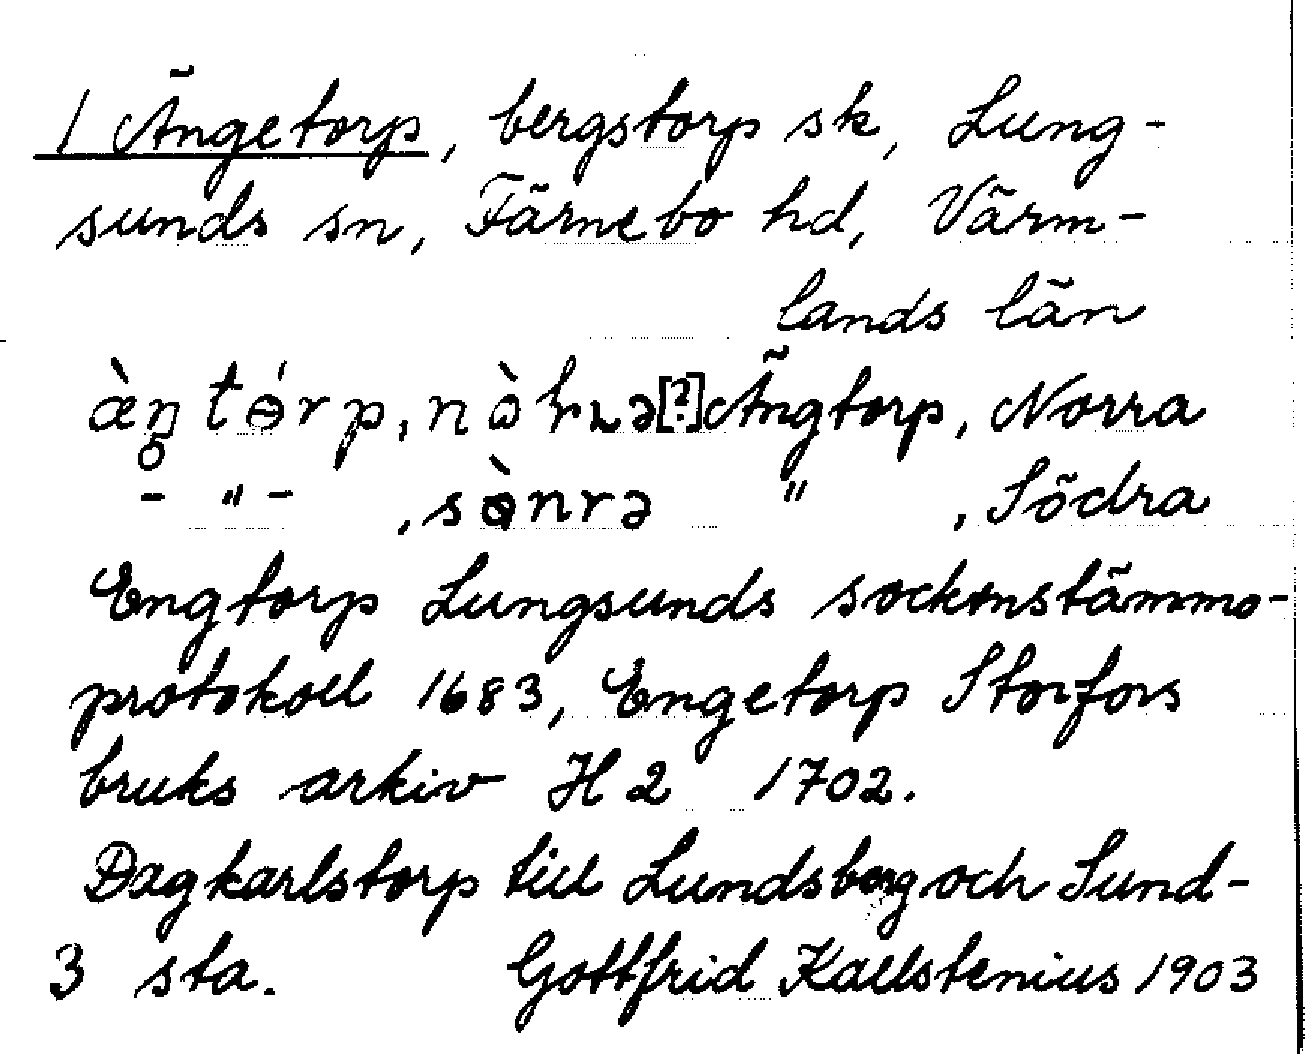 1 Ängetorp, bergstorp sk, Lung-
sunds sn, Färnebo hd, Värm-
lands län
æ̀ŋ̥ tɵ́rp, nɔ̀ɦɿə [?] Ängtorp, Norra
- " - , sɵ̀nrə " , Södra
Engtorp Lungsunds sockenstämmo-
protokoll 1683, Engetorp Storfors
bruks arkiv H 2 1702.
Dagkarlstorp till Lundsberg och Sund-
3 sta. Gottfrid Kallstenius 1903